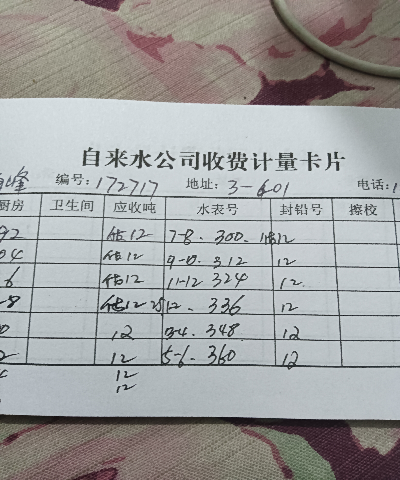 自来水公司收费计量卡片
峰 编号:172717 地址:3-601 电话:1
厨房 卫生间 应收吨 水表号 封铅号 擦校
92 估12 7-8. 300. 12
04 估12 9-10. 312 12
6 估12 11-12 324 12.
-8 估12 12. 336 12
0 12 3-4. 348. 12
2 12 5-6. 360 12
12
12